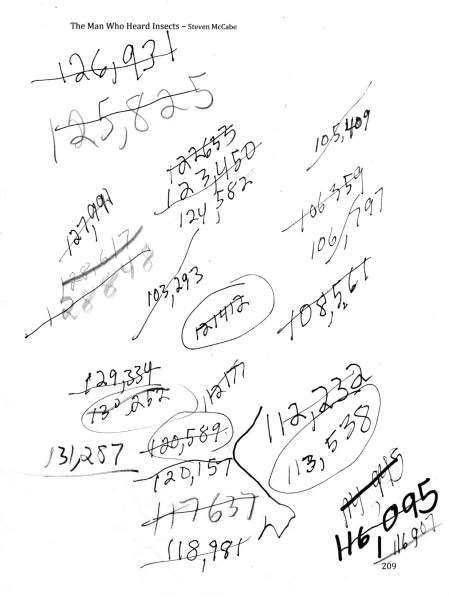 The Man Who Heard Insects – Steven McCabe
126,931
125,825
122653
123,450
124,582
105,409
106359
106,797
127,991
128,617
128848
103,293
121412
108,561
129,334
130,262
131,287
120,589
120,157
117637
118,981
112,232
113,538
116,095
116907
209